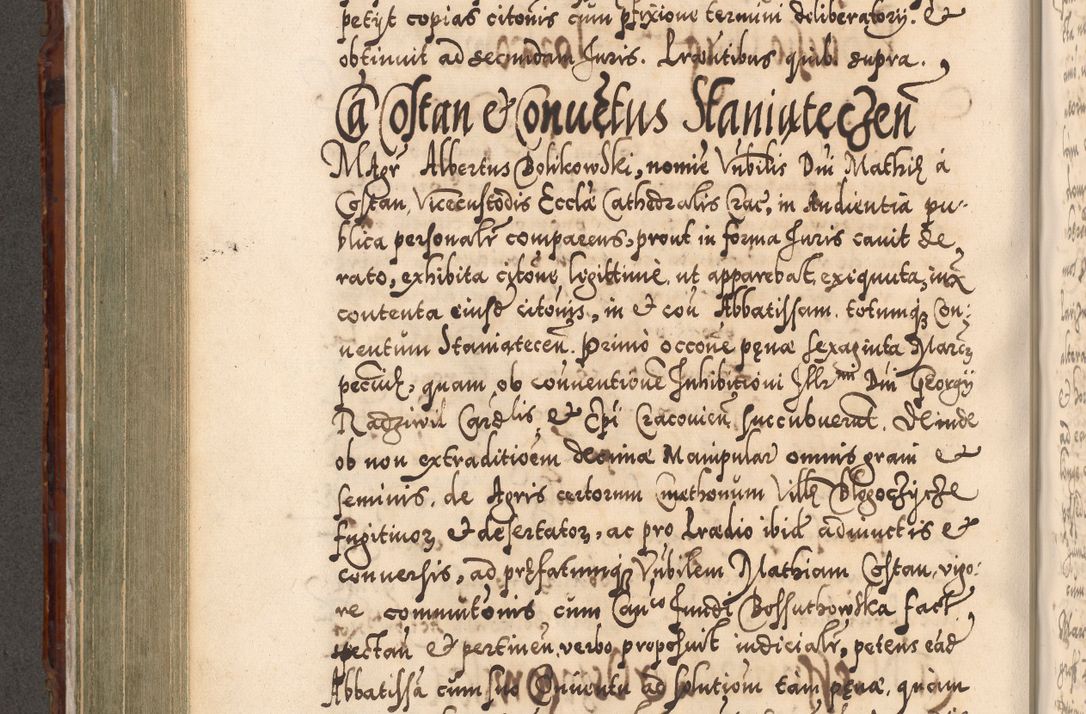 petyt copias citonis cum pfixione termini deliberatory. &
obtinuit ad secundam Iuris. Pręntibus quib. supra.
Coştan & Conuętus Staniąteczeń
Magr Albertus Bolikowski, nomie Vnbilis Dni Mathię á
Costan, Vicecustodis Ecclæ Cathedralis Crac, in Audientia pu-
blica personalr comparens, prout in forma Iuris cauit de
rato, exhibita citone, legittime, ut apparebat, exequuta, iux
contenta eiusd citonis, in & con Abbatissam, totumq Con-
uentum Staniątecen. Primo occone penæ sexaginta Marcz
pecuniæ, quam ob conuentione Inhibitioni Illrmi Dni Georgij
Radziwil Cardlis, & Epi Cracouien, succubuerat. Deinde
ob non extraditioem decimæ Manipular omnis grani &
seminis, de Agris certorum Cmethonum Villæ
fugitiuorz & desertatorz, ac pro Prædio ibid adiunctis &
conuersis, ad pręfatumq Vnbilem Mathiam Costan, vigo-
re commutonis cum Canco Fundi Bossuthowska fact,
spectan & pertinen, verbo proposuit iudicialr, petens ead
Abbatissa cum suo Conuentu ad solutiom tam penæ, quam